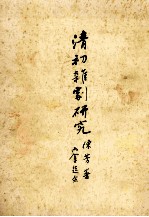 清初雜劇研究
陳芳著